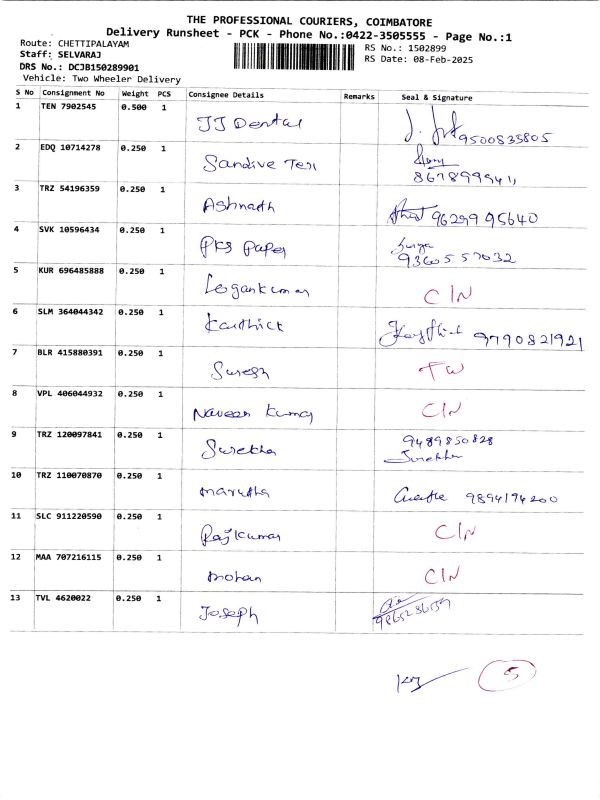 THE PROFESSIONAL COURIERS, COIMBATORE
Delivery Runsheet - PCK - Phone No.:0422-3505555 - Page No.:1
Route: CHETTIPALAYAM RS No.: 1502899
Staff: SELVARAJ RS Date: 08-Feb-2025
DRS No.: DCJB150289901
Vehicle: Two Wheeler Delivery
S No Consignment No Weight PCS Consignee Details Remarks Seal & Signature
1 TEN 7902545 0.500 1 JJ Dental 9500835805
2 EDQ 10714278 0.250 1 Sandive
3 TRZ 54196359 0.250 1 Ashnath 96299 95640
4 SVK 10596434 0.250 1 PKS Paper Surya 9360557032
5 KUR 696485888 0.250 1 Logankumar C/N
6 SLM 364044342 0.250 1 Karthick 9790821921
7 BLR 415880391 0.250 1 Suresh TW
8 VPL 406044932 0.250 1 Naveen Kumar C/N
9 TRZ 120097841 0.250 1 Surekha 9489850828
Surekha
10 TRZ 110070870 0.250 1 Marutha 9894194200
11 SLC 911220590 0.250 1 Rajkumar C/N
12 MAA 707216115 0.250 1 Mohan C/N
13 TVL 4620022 0.250 1 Joseph
5